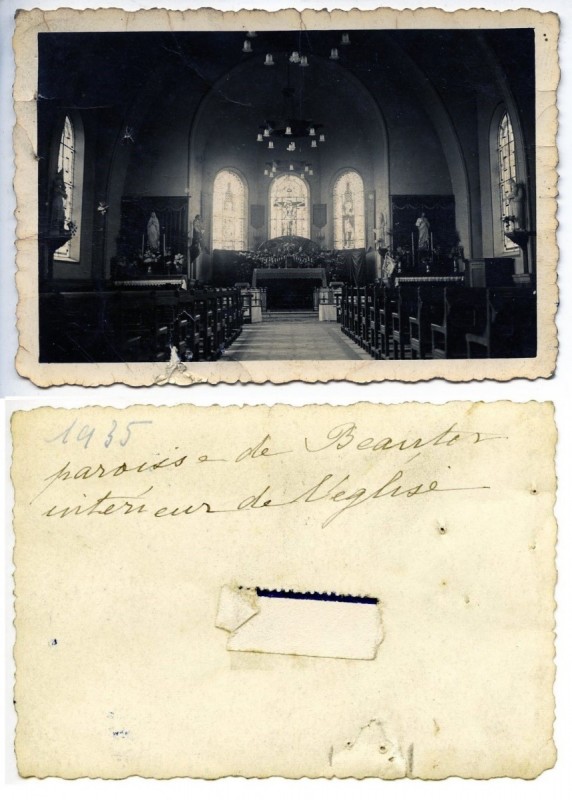 1935
paroisse de Beautor
intérieur de l'eglise